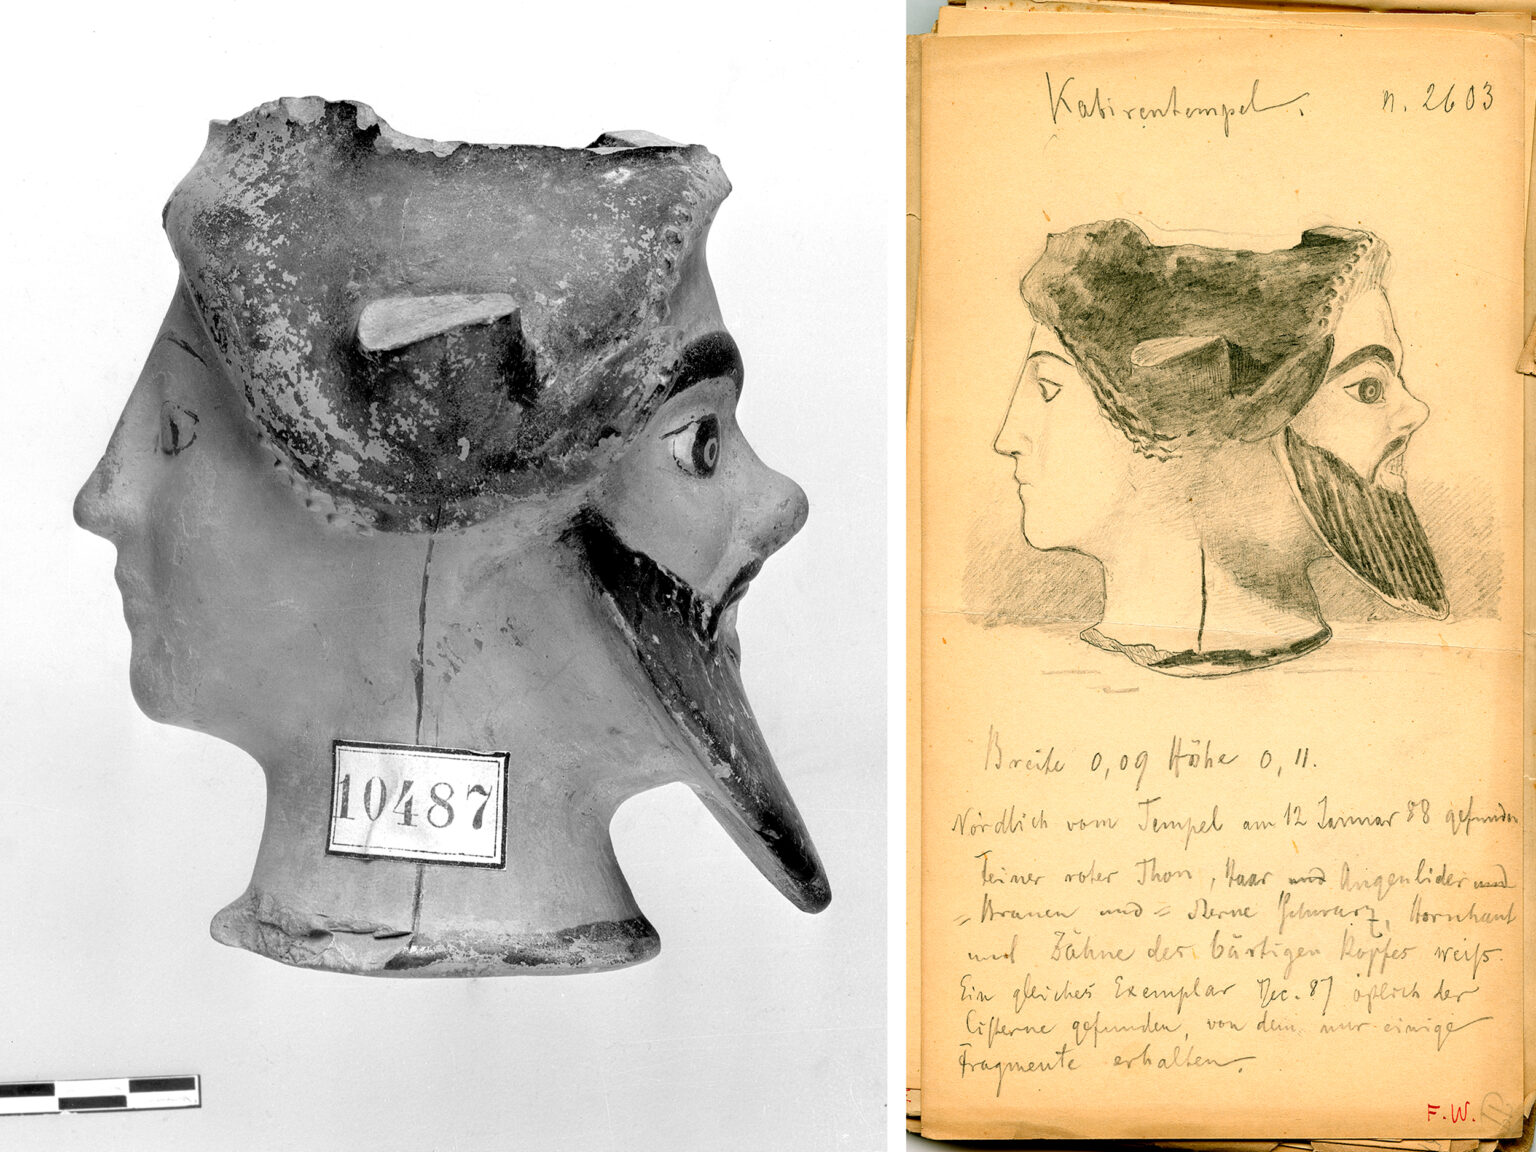 10487
Kabirentempel. n. 2603
Breite 0,09 Höhe 0,11.
Nördlich vom Tempel am 12 Januar 88 gefunden
Feiner roter Thon, Haar und Augenlider und
= Brauen und = Sterne schwarz, Hornhaut
und Zähne des bärtigen Kopfes weiß.
Ein gleiches Exemplar Dec. 87 östlich der
Cisterne gefunden, von dem nur einige
Fragmente erhalten.
F.W.